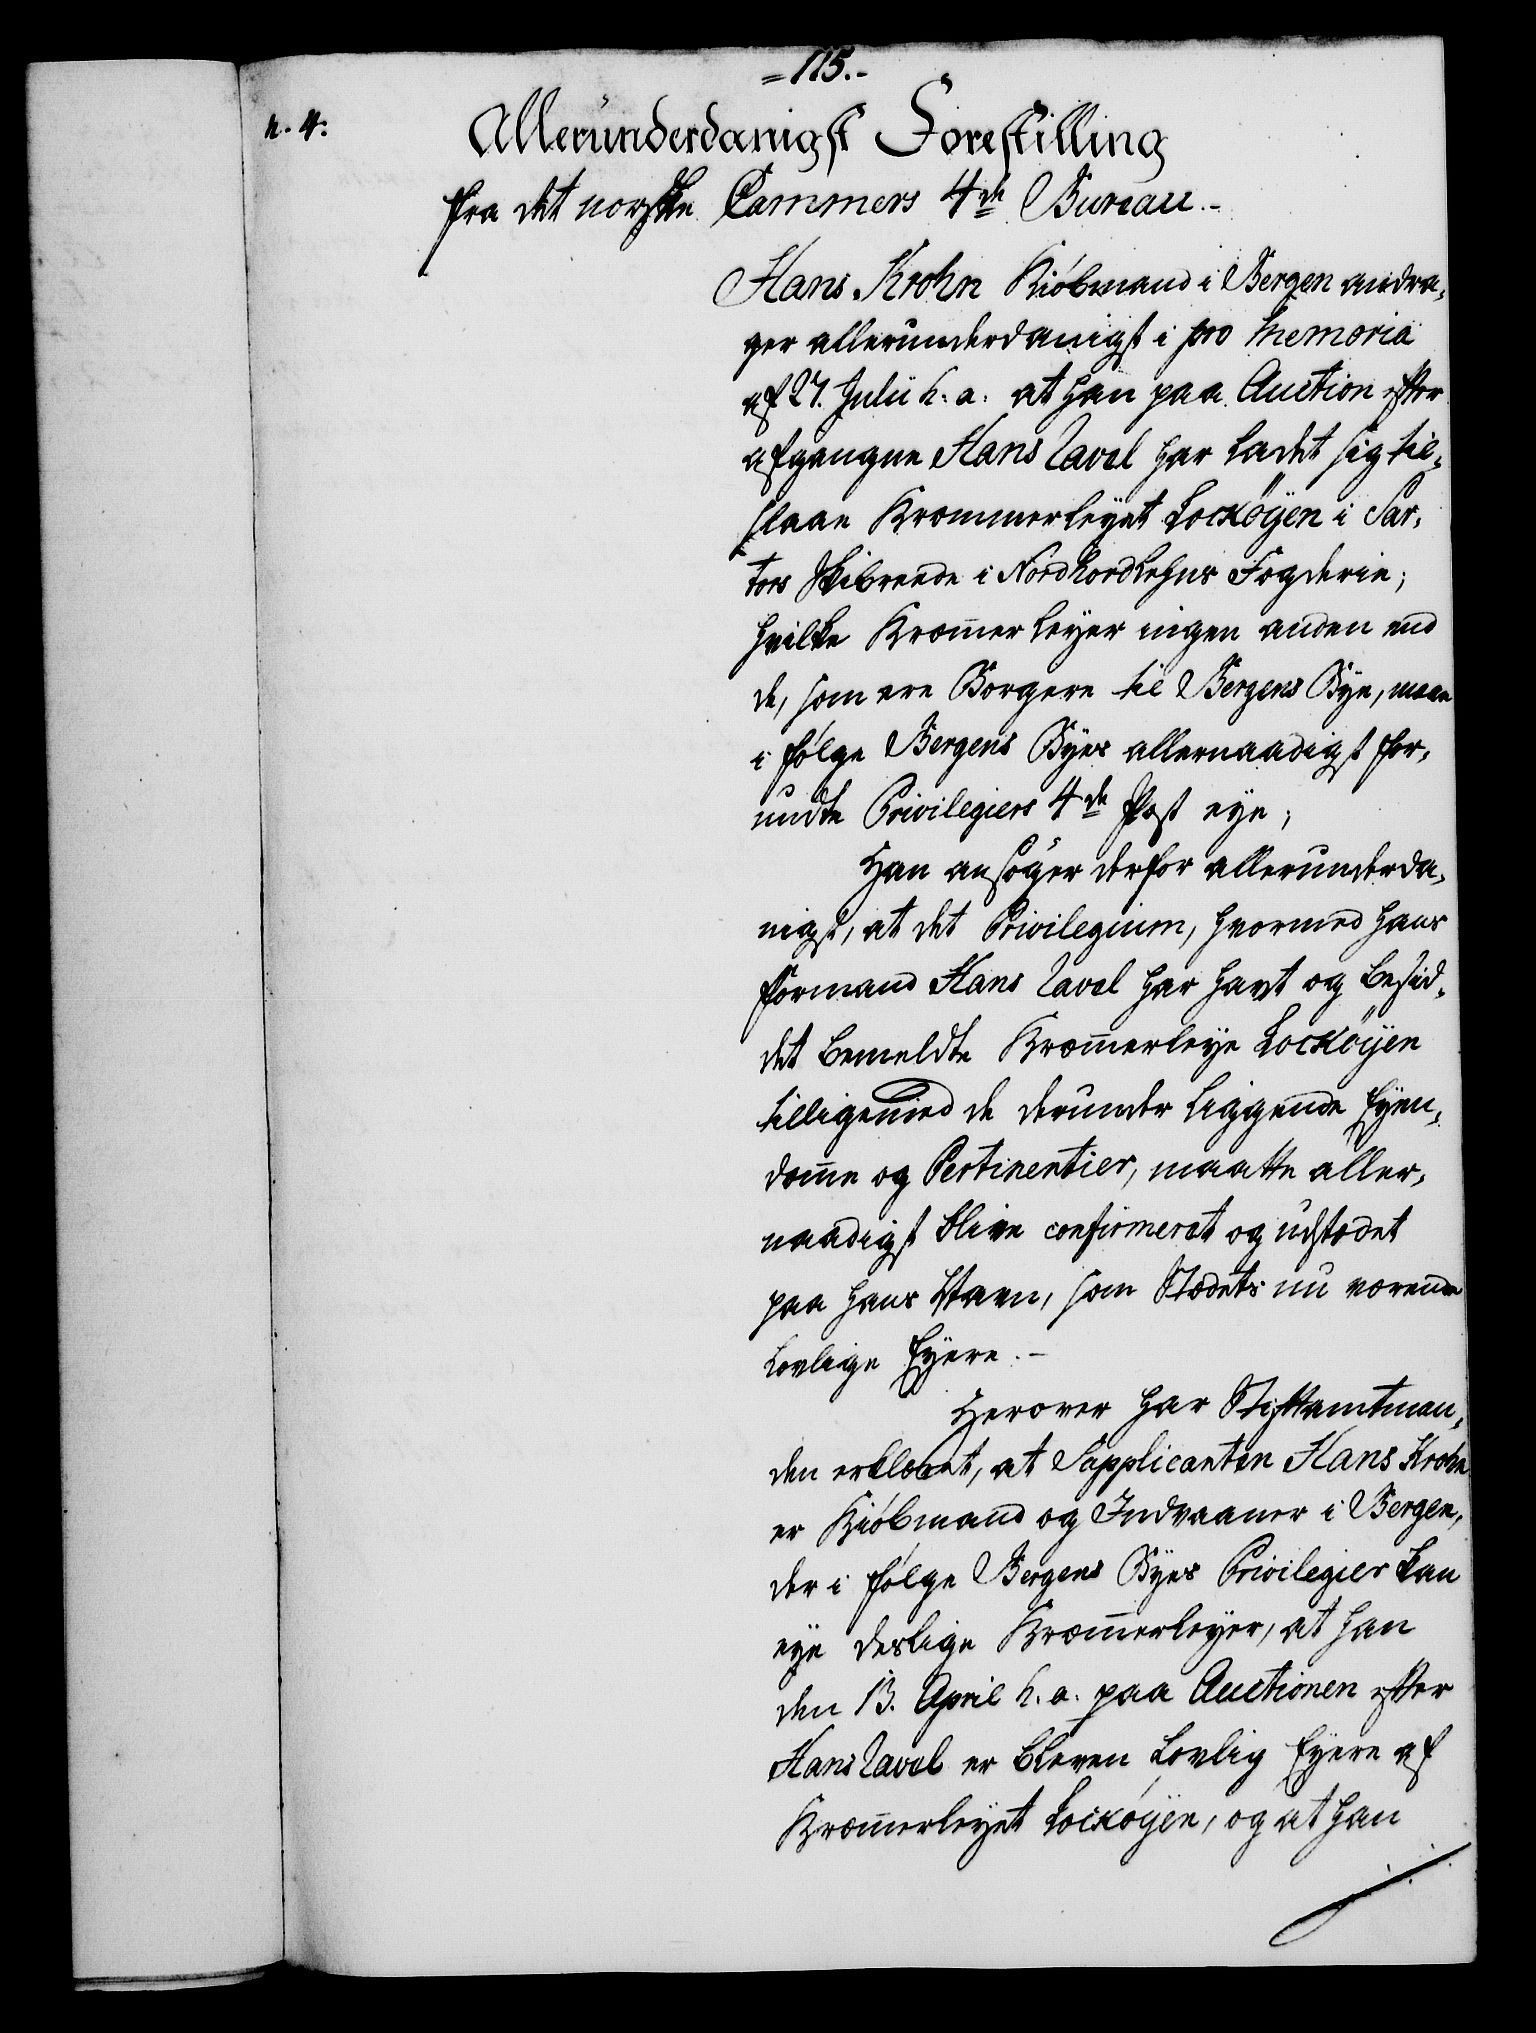 =115.-
n. 4.
Allerunderdanigst Forestilling
fra det norske Cammers 4de Bureau.-
Hans Krohn Kiöbmand i Bergen andra,
ger allerunderdanigst i pro Memoria
af 27. Julii h: a: at han paa Auction efter
afgangne Hans Zavel har ladet sig til,
slaae Kræmmerleyet Lockøÿen i Sar,
tors Skibreede i Nordhordlehns Fogderie;
hvilke Kræm̅er Leyer ingen anden end
de, som ere Borgere til Bergens Bye, maae
i følge Bergens Byes allernaadigst for,
undte Privilegiers 4de Post eye;
Han ansøger derfor allerunderda,
nigst, at det Privilegium, hvormed hans
Formand Hans Zavel har havt og besid,
det bemeldte Kræm̅erleye Lockøÿen
tilligemed de derunder liggende Eyen,
dom̅e og Pertinentier, maatte aller,
naadigst blive confirmeret og udstædet
paa hans Navn, som Stædets nu værende
Lovlige Eÿere.-
Herover har Stiftamtman,
den erklæret, at Supplicanten Hans Krohn
er Kiöbmand og Indvaaner i Bergen,
der i følge Bergens Byes Privilegier kan
eye deslige Kræm̅erleyer, at han
den 13. April h. a. paa Auctionen efter
Hans Zavel er bleven Lovlig Eÿere af
Kræm̅erleyet Lockøÿen, og at han